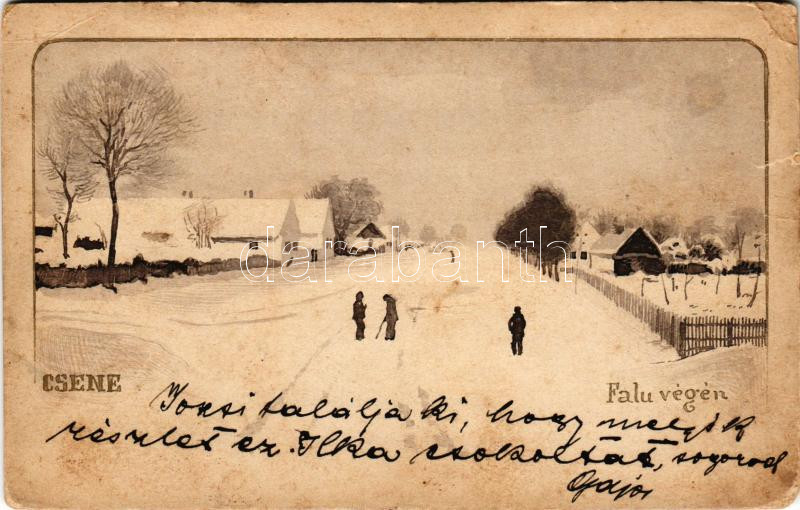 darabanth.com
CSENE
Falu végén
Jozsi találja ki, hogy melyik
részlet ez. Ilka csokoltat, sogorod